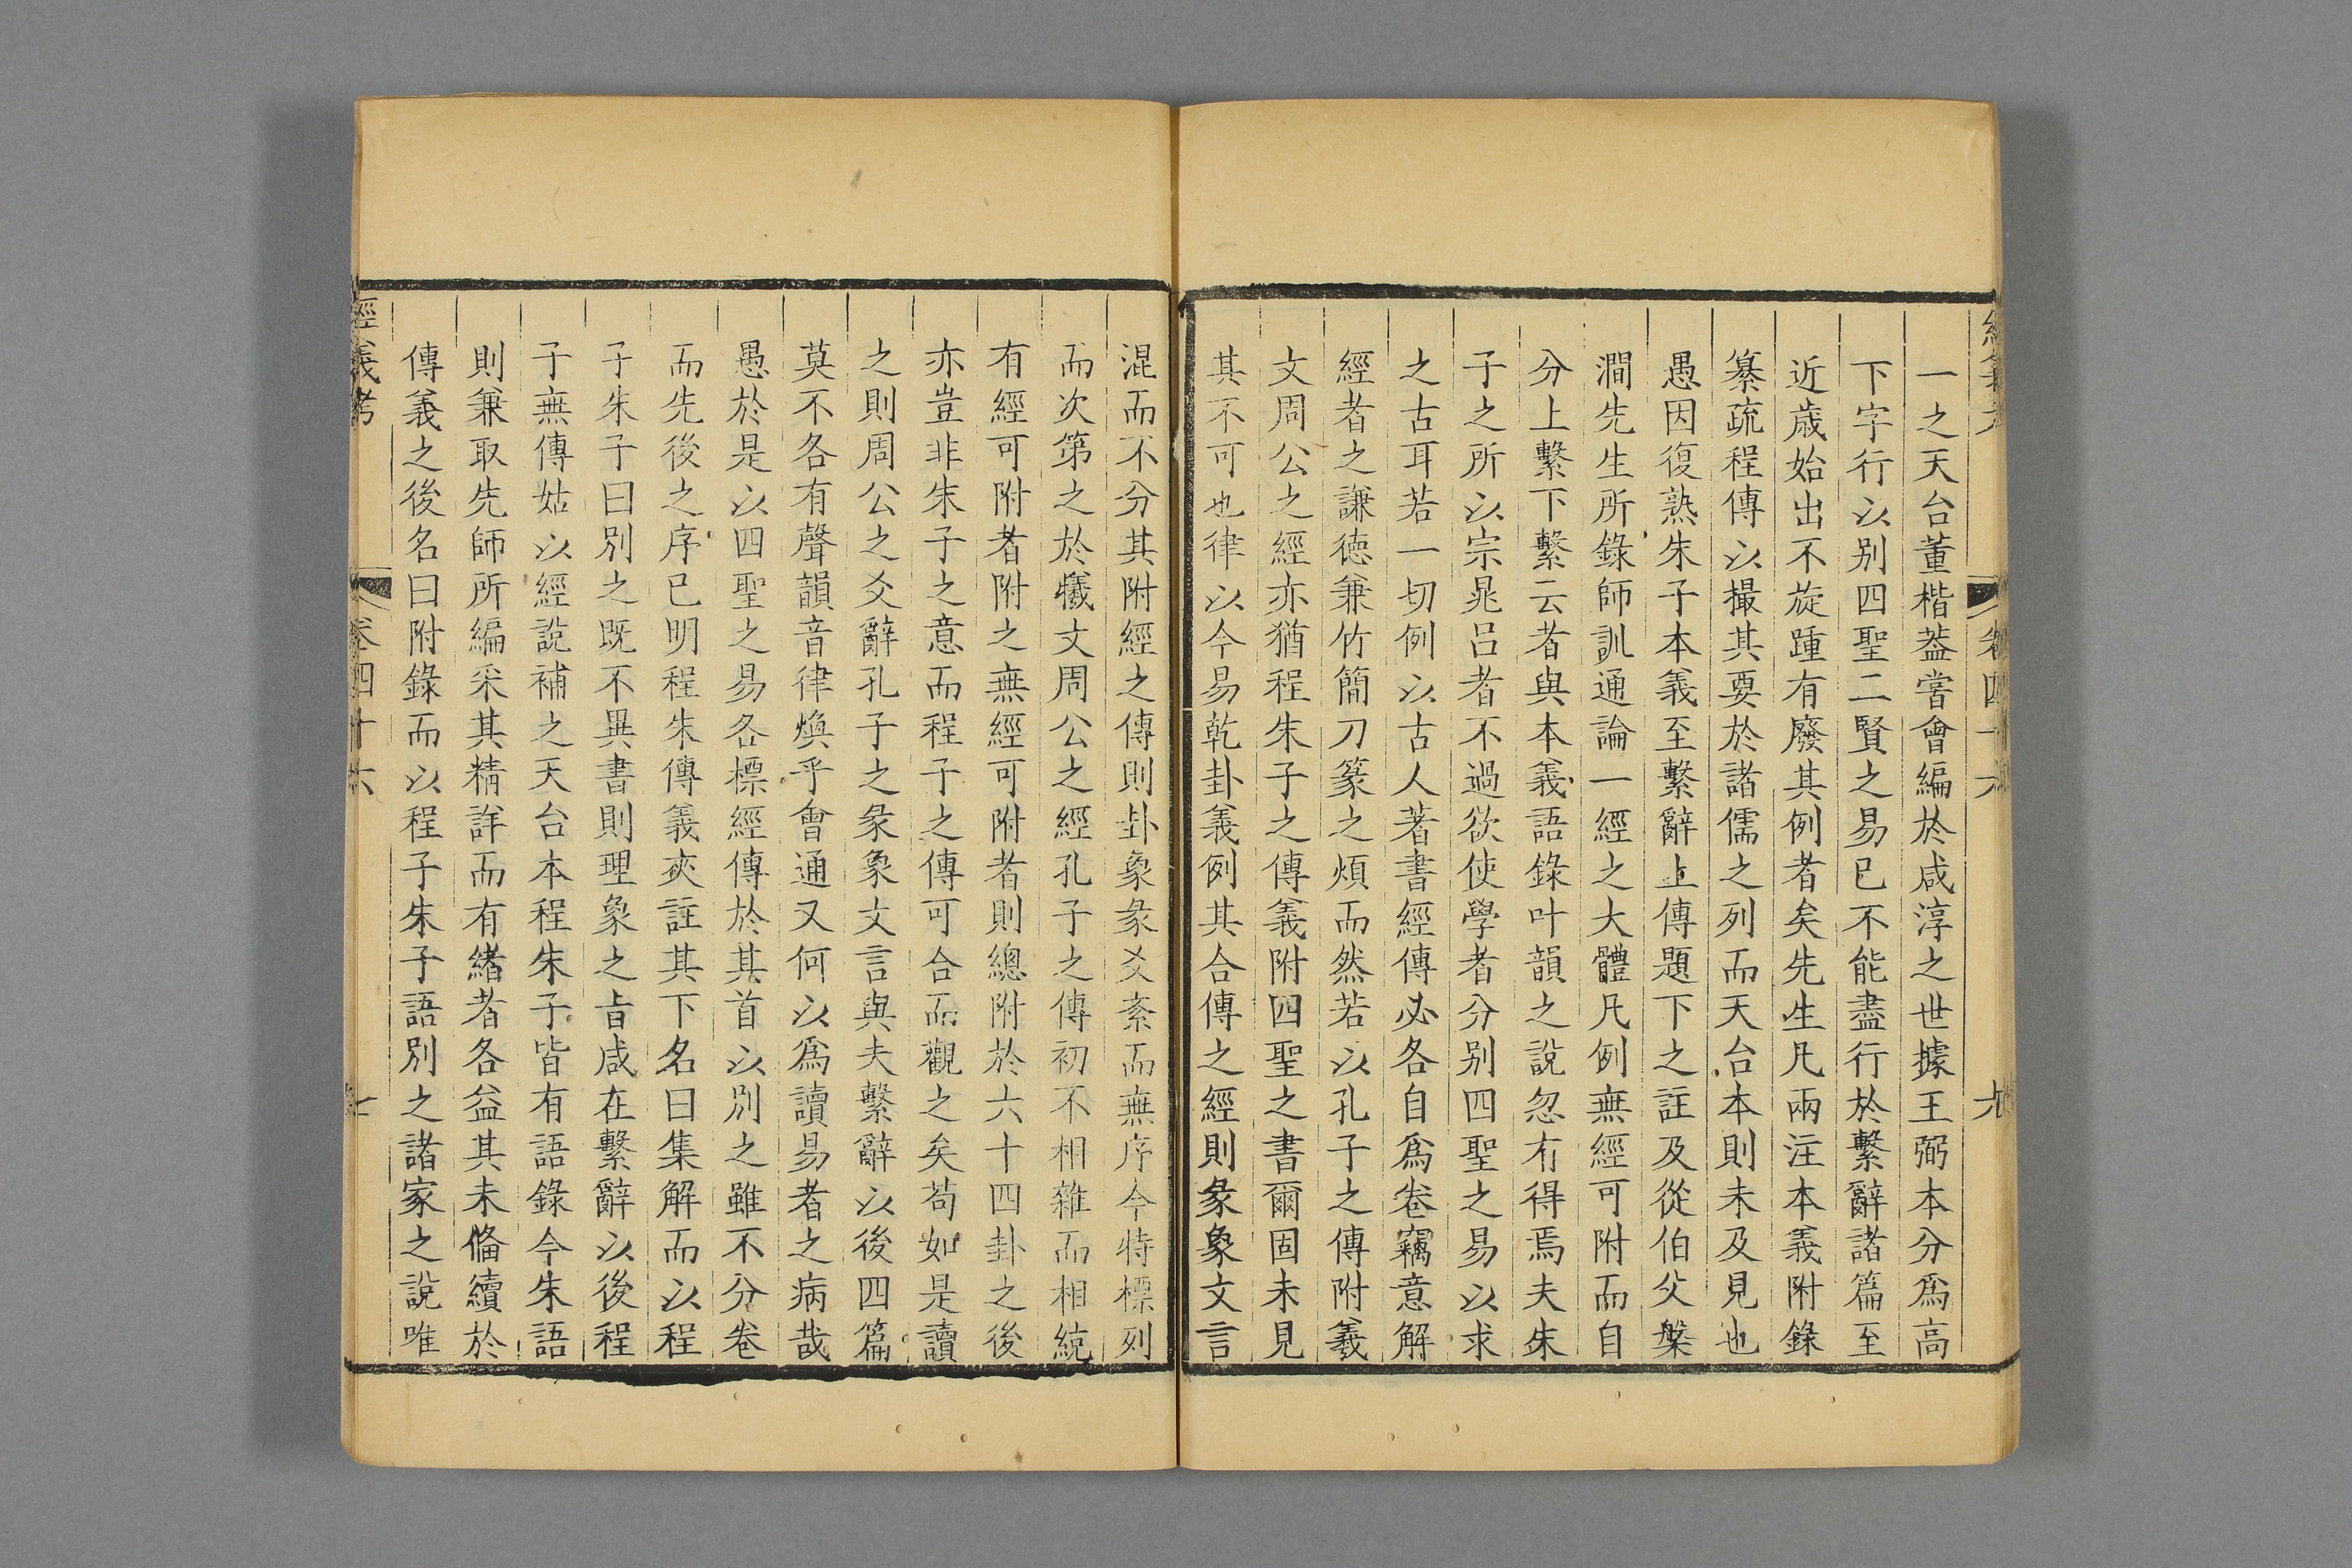 經義考
卷四十六
一之天台董楷葢嘗會編於咸淳之世據王弼本分爲高
下字行以别四聖二賢之易已不能盡行於繫辭諸篇至
近歳始出不旋踵有廢其例者矣先生凡兩注本義附錄
纂疏程傳以撮其要於諸儒之列而天台本則未及見也
愚因復熟朱子本義至繫辭上傳題下之註及從伯父槃
澗先生所錄師訓通論一經之大體凡例無經可附而自
分上繫下繫云者與本義語錄叶韻之說忽有得焉夫朱
子之所以宗晁呂者不過欲使學者分别四聖之易以求
之古耳若一切例以古人著書經傳必各自爲卷竊意解
經者之謙德兼竹簡刀篆之煩而然若以孔子之傳附羲
文周公之經亦猶程朱子之傳義附四聖之書爾固未見
其不可也律以今易乾卦義例其合傳之經則彖象文言
混而不分其附經之傳則卦象彖爻紊而無序今特標列
而次第之於犧文周公之經孔子之傳初不相雜而相統
有經可附者附之無經可附者則總附於六十四卦之後
亦豈非朱子之意而程子之傳可合而觀之矣苟如是讀
之則周公之爻辭孔子之彖象文言與夫繫辭以後四篇
莫不各有聲韻音律煥乎會通又何以爲讀易者之病哉
愚於是以四聖之易各標經傳於其首以別之雖不分卷
而先後之序已明程朱傳義夾註其下名曰集解而以程
子朱子曰別之既不異書則理象之旨咸在繫辭以後程
子無傳姑以經說補之天台本程朱子皆有語錄今朱語
則兼取先師所編采其精詳而有緒者各益其未備續於
傳義之後名曰附錄而以程子朱子語別之諸家之說唯
經義考
卷四十六
七